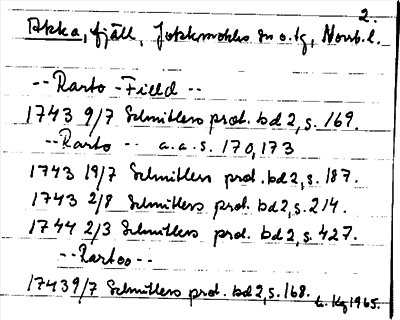 2.
Akka, fjäll, Jokkmokks sn o. tg, Norrb. l.
-- Rarto - Fielld --
1743 9/7 Schnitlers prot. bd 2, s. 169.
-- Rarto -- a.a. s. 170, 173
1743 19/7 Schnitlers prot. bd 2, s. 187.
1743 2/8 Schnitlers prot. bd 2, s. 214.
1744 2/3 Schnitlers prot. bd 2, s. 427.
-- Rartoo --
1743 9/7 Schnitlers prot. bd 2, s. 168.
1965.